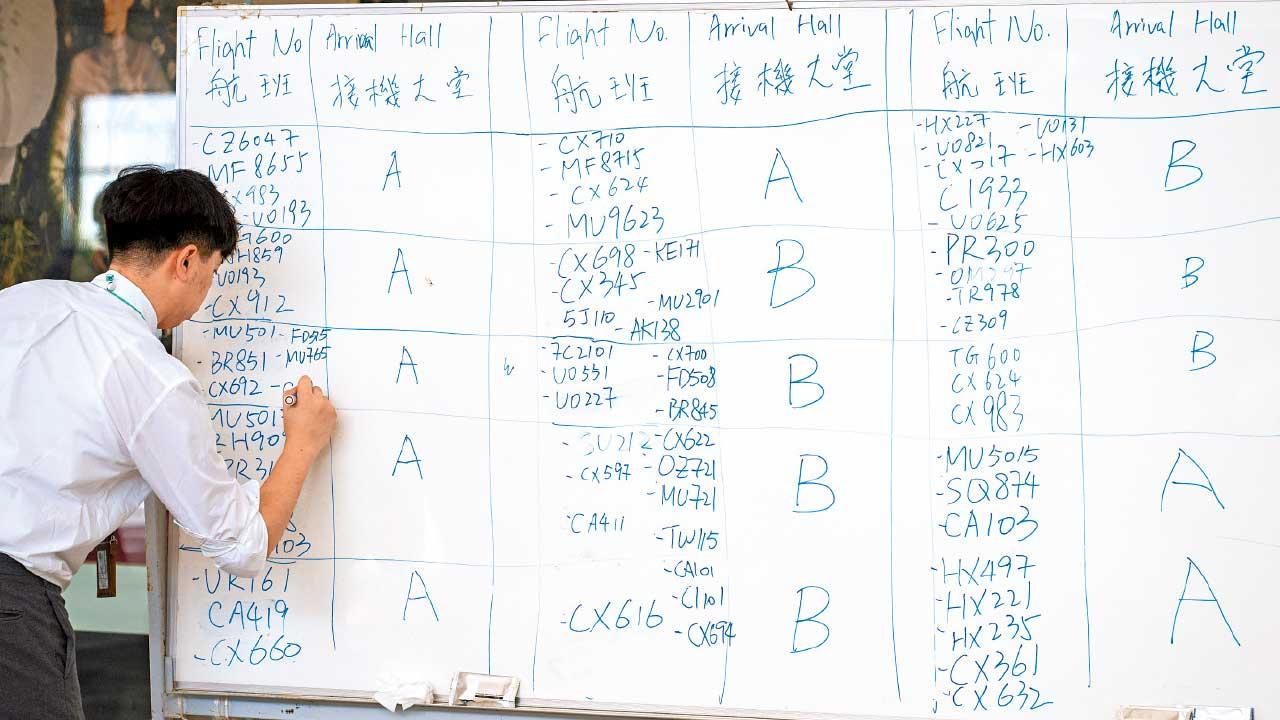 Flight No
航班
Arrival Hall
接機大堂
-CZ6047
MF8655
CX983
-UO193
A
600
H859
UO193
-CX912
A
-MU501 -FD515
-BR851 -MU765
-CX692
A
MU501
A
103
-UK161
CA419
-CX660
A
Flight No.
航班
Arrival Hall
接機大堂
-CX710
-MF8715
-CX624
-MU9623
A
-CX698 -KE171
-CX345
-MU2901
5J110
-AK138
B
-7C2101 -CX700
-UO551 -FD508
-UO227
-BR845
B
-CX622
-CX597 -OZ721
-MU721
CA411
-TW115
B
-CA101
-CI101
-CX616 -CX694
B
Flight No.
航班
Arrival Hall
接機大堂
-HX227 -UO131
-UO821 -HX603
C1933
-UO625
B
-PR300
-TR978
-CZ309
B
TG600
CX624
CX983
B
-MU5015
-SQ874
-CA103
A
-HX497
-HX221
-HX235
-CX361
-CX632
A